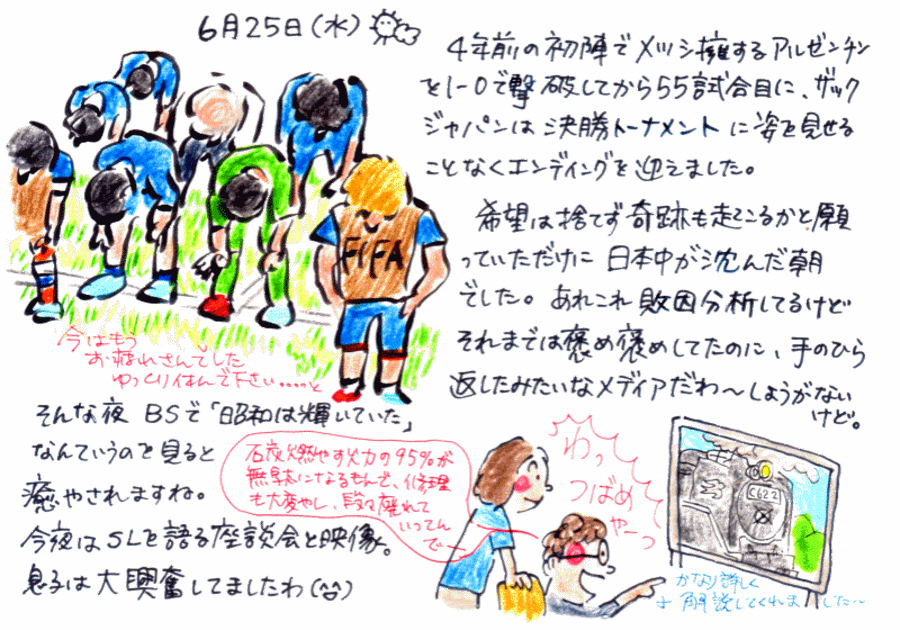 6月25日(水)
4年前の初陣でメッシ擁するアルゼンチン
を1-0で撃破してから55試合目に、ザック
ジャパンは決勝トーナメントに姿を見せる
ことなくエンディングを迎えました。
希望は捨てず奇跡も起こるかと願
っていただけに日本中が沈んだ朝
でした。あれこれ敗因分析してるけど
それまでは褒め褒めしてたのに、手のひら
返したみたいなメディアだわ〜しょうがない
けど。
FIFA
今はもう
お疲れさんでした
ゆっくり休んで下さい……と
そんな夜BSで「昭和は輝いていた」
なんていうのを見ると
癒やされますね。
今夜はSLを語る座談会と映像。
息子は大興奮してましたわ(^^)
石炭燃やす火力の95%が
無駄になるもんで、修理
も大変やし、段々廃れて
いってん
で〜
わっ
つばめ
やーっ
C622
かなり詳しく
解説してくれました〜